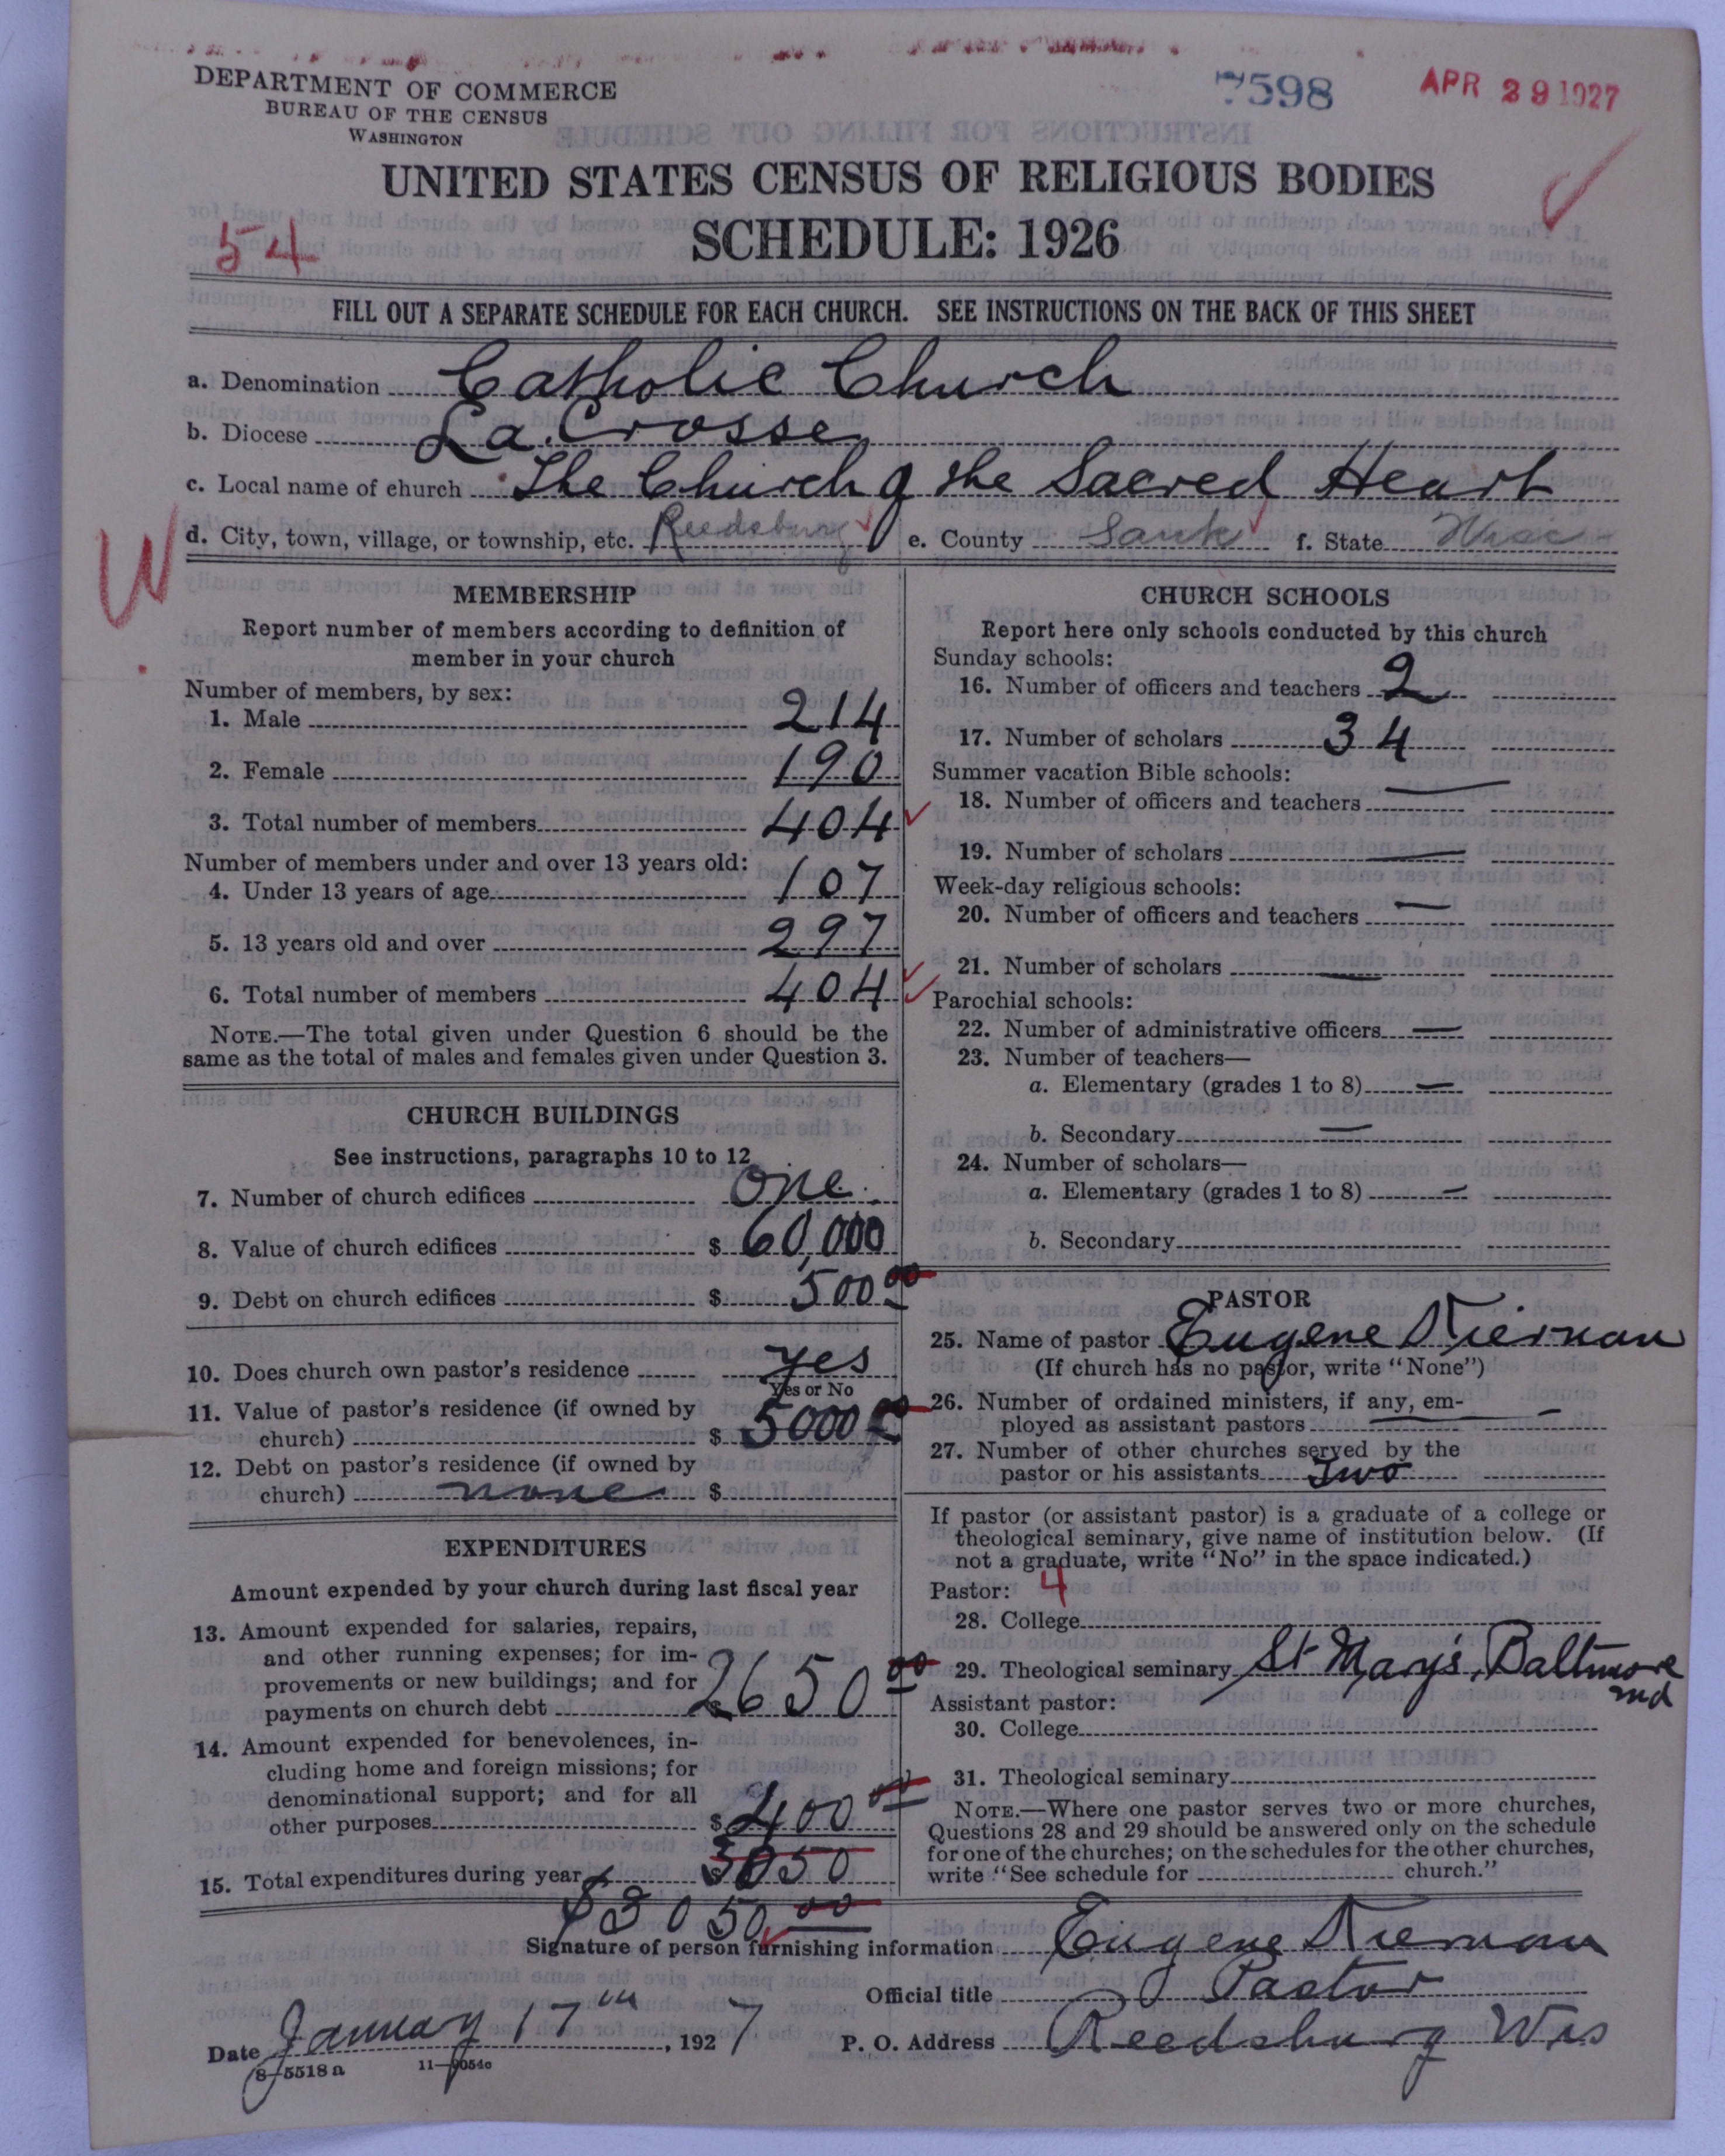 DEPARTMENT OF COMMERCE
BUREAU OF THE CENSUS
WASHINGTON
7598
APR 29 1927
UNITED STATES CENSUS OF RELIGIOUS BODIES
SCHEDULE: 1926
54
FILL OUT A SEPARATE SCHEDULE FOR EACH CHURCH. SEE INSTRUCTIONS ON THE BACK OF THIS SHEET
a. Denomination Catholic Church
b. Diocese La Crosse
c. Local name of church The Church of the Sacred Heart
d. City, town, village, or township, etc. Reedsburg e. County Sauk f. State Wisc
W
MEMBERSHIP
Report number of members according to definition of
member in your church
Number of members, by sex:
1. Male 214
2. Female 190
3. Total number of members 404
Number of members under and over 13 years old:
4. Under 13 years of age 107
5. 13 years old and over 297
6. Total number of members 404
NOTE.—The total given under Question 6 should be the
same as the total of males and females given under Question 3.
CHURCH BUILDINGS
See instructions, paragraphs 10 to 12
7. Number of church edifices one
8. Value of church edifices $ 60,000
9. Debt on church edifices $ 500 00
10. Does church own pastor's residence yes
Yes or No
11. Value of pastor's residence (if owned by
church) $ 5000 00
12. Debt on pastor's residence (if owned by
church) none $
EXPENDITURES
Amount expended by your church during last fiscal year
13. Amount expended for salaries, repairs,
and other running expenses; for im-
provements or new buildings; and for
payments on church debt $ 2650 00
14. Amount expended for benevolences, in-
cluding home and foreign missions; for
denominational support; and for all
other purposes $ 400 00
15. Total expenditures during year $ 3050
$3050 00
CHURCH SCHOOLS
Report here only schools conducted by this church
Sunday schools:
16. Number of officers and teachers 2
17. Number of scholars 34
Summer vacation Bible schools:
18. Number of officers and teachers —
19. Number of scholars —
Week-day religious schools:
20. Number of officers and teachers —
21. Number of scholars —
Parochial schools:
22. Number of administrative officers —
23. Number of teachers—
a. Elementary (grades 1 to 8) —
b. Secondary —
24. Number of scholars—
a. Elementary (grades 1 to 8) —
b. Secondary
PASTOR
25. Name of pastor Eugene Kiernan
(If church has no pastor, write "None")
26. Number of ordained ministers, if any, em-
ployed as assistant pastors —
27. Number of other churches served by the
pastor or his assistants Two
If pastor (or assistant pastor) is a graduate of a college or
theological seminary, give name of institution below. (If
not a graduate, write "No" in the space indicated.)
Pastor: 4
28. College
29. Theological seminary St Mary's, Baltimore
Md
Assistant pastor:
30. College
31. Theological seminary
NOTE.—Where one pastor serves two or more churches,
Questions 28 and 29 should be answered only on the schedule
for one of the churches; on the schedules for the other churches,
write "See schedule for church."
Signature of person furnishing information Eugene Kiernan
Official title Pastor
Date January 17th, 1927 P. O. Address Reedsburg Wis
8-5518 a 11-9054c